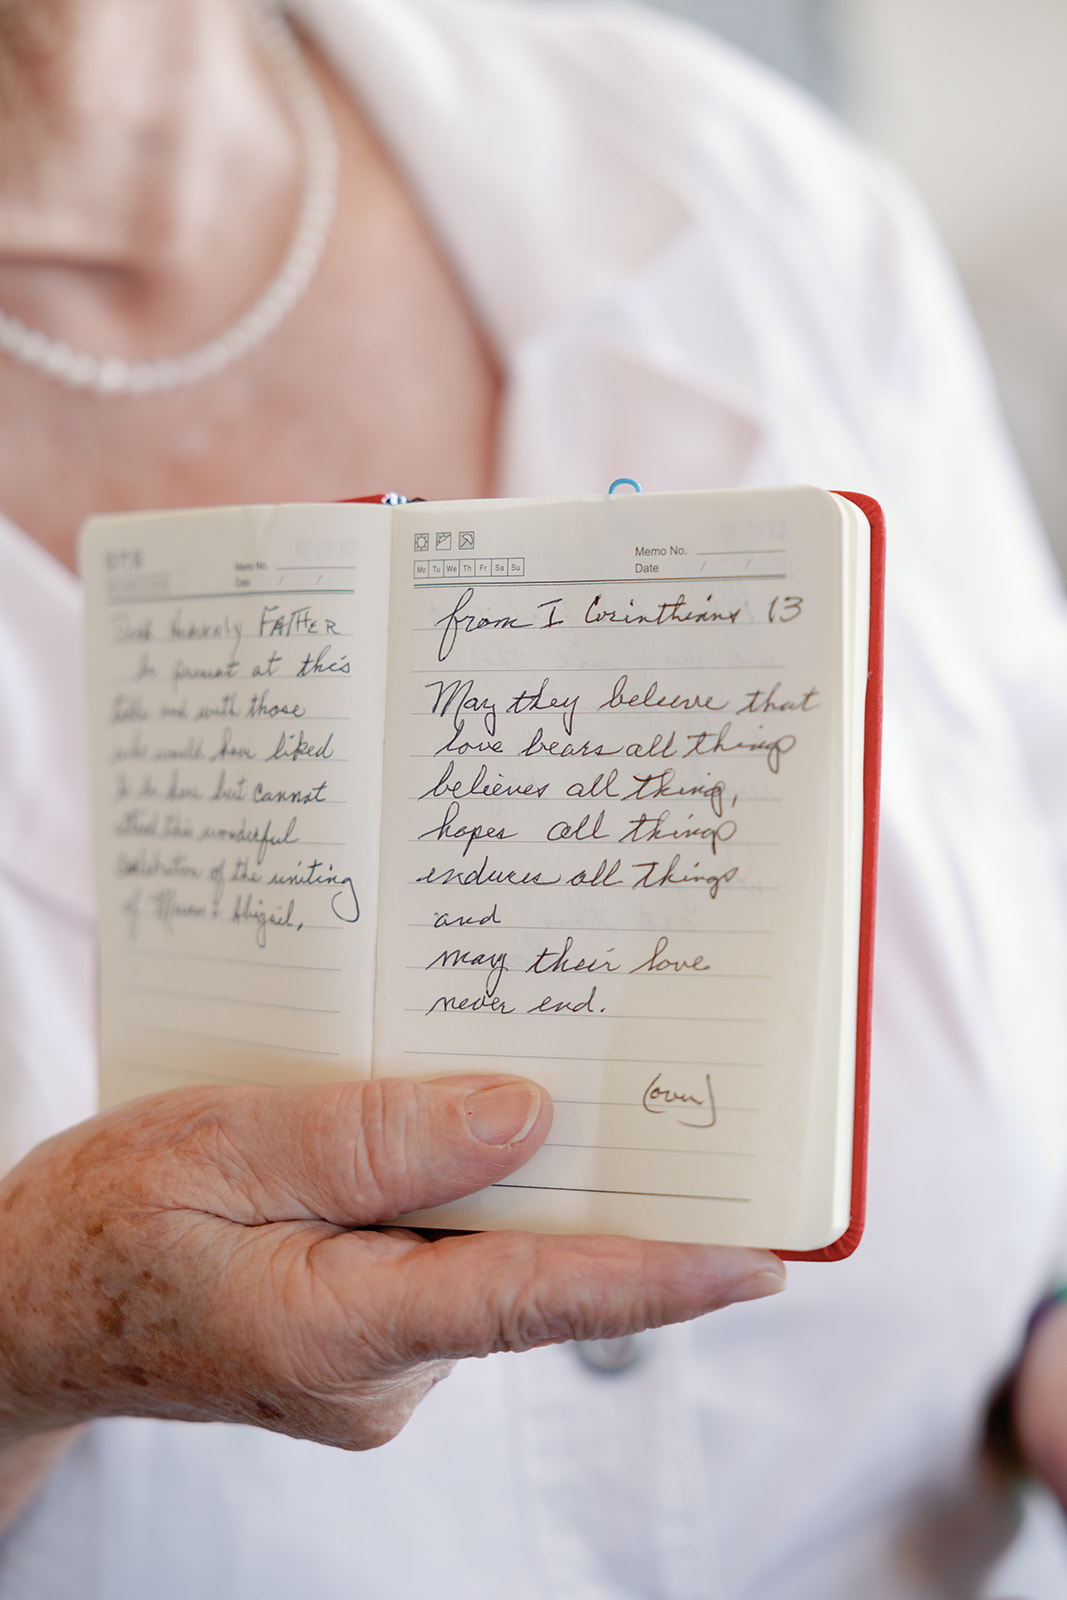 Memo No.
Date / /
Dear Heavenly FATHER
Be present at this
table and with those
who would have liked
to be here but cannot
attend this wonderful
celebration of the uniting
of & Abigail,
Mo Tu We Th Fr Sa Su
Memo No.
Date / /
from I Corinthians 13
May they believe that
love bears all things
believes all things,
hopes all things
endures all things
and
may their love
never end.
(over)